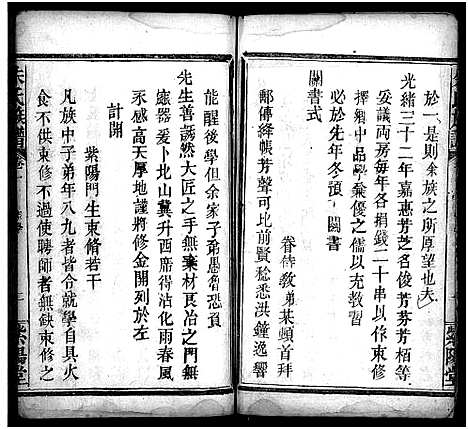 於一是則余族之所原望也夫
光緒三十二年嘉惠芳芝名俊芳芬芳柏等
妥議兩房每年各捐錢二十串以作束修
擇鄉中品學兼優之儒以充教習
必於先年冬預 關書
關書式
眷侍教弟某頓首拜
鄱傳絳帳芳聲可比前賢稔悉洪鐘逸響
能醒後學但余家子弟愚魯恐負
先生善誘然大匠之手無棄材良冶之門無
窳器爰卜北山冀升西席得沾化雨春風
永感高天厚地謹將修金開列於左
計開
紫陽門生束脩若干
凡族中子弟年八九者皆令就學自具火
食不供束修不過使聘師者無缺束修之
朱氏族譜
紫陽堂
紫陽堂